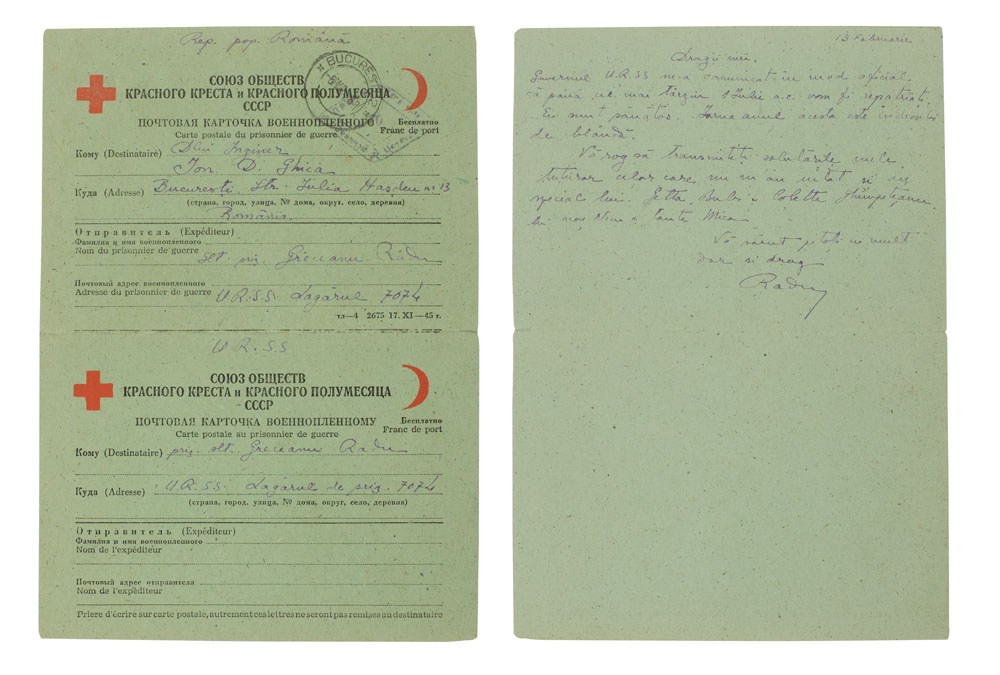 Rep. pop. Română
BUCUREȘTI
СОЮЗ ОБЩЕСТВ
КРАСНОГО КРЕСТА и КРАСНОГО ПОЛУМЕСЯЦА
СССР
ПОЧТОВАЯ КАРТОЧКА ВОЕННОПЛЕННОГО
Бесплатно
Carte postale du prisonnier de guerre
Franc de port
Кому (Destinataire) Dlui Inginer
Ion D. Ghica
Куда (Adresse) Bucuresti Str. Iulia Hasdeu no 13
(страна, город, улица, № дома, округ, село, деревня)
România
Отправитель (Expéditeur)
Фамилия и имя военнопленного
Nom du prisonnier de guerre slt. priz. Greceanu Radu
Почтовый адрес военнопленного
Adresse du prisonnier de guerre U.R.S.S. Lagărul 7074
тл—4 2675 17. XI—45 г.
U.R.S.S
СОЮЗ ОБЩЕСТВ
КРАСНОГО КРЕСТА и КРАСНОГО ПОЛУМЕСЯЦА
СССР
ПОЧТОВАЯ КАРТОЧКА ВОЕННОПЛЕННОМУ
Бесплатно
Carte postale au prisonnier de guerre
Franc de port
Кому (Destinataire) priz. slt. Greceanu Radu
Куда (Adresse) U.R.S.S. Lagărul de priz. 7074
(страна, город, улица, № дома, округ, село, деревня)
Отправитель (Expéditeur)
Фамилия и имя военнопленного
Nom de l'expéditeur
Почтовый адрес отправителя
Nom de l'expéditeur
Priere d'écrire sur carte postale, autrement ces lettres ne seront pas remises au destinataire
13 Februarie
Dragii mei,
Guvernul U.R.S.S ne-a comunicat în mod oficial
că până cel mai târziu 1 Iulie a.c. vom fi repatriați.
Eu sunt sănătos. Iarna anul acesta este
de blândă.
Vă rog să transmiteți salutările mele
tuturor celor care nu m'au uitat si
special lui Etta, Bubi, Colette
tante
Vă sărut pe toți cu mult
dor si drag
Radu